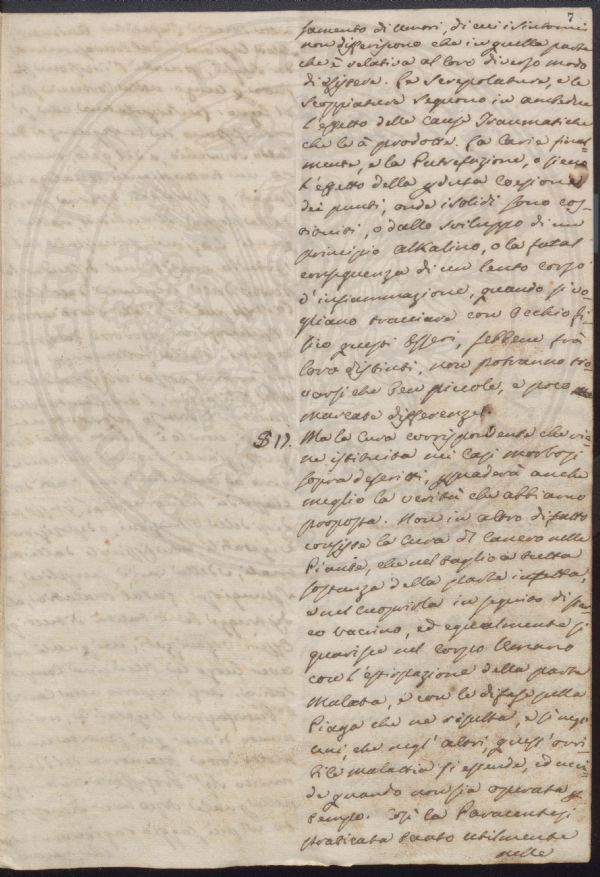 7
samento di Umori, di cui i Sintomi
non differiscono che in quella parte
che è relativa al loro diverso modo
di esistere. La Screpolatura, e le
Scoppiature seguono in ambedue
l'effetto delle cause Traumatiche
che le à prodotte. La Carie final-
mente, e la Putrefazione, o siena
l'effetto della pduta Coesione
dei punti, onde i solidi sono cos-
tituiti, o dallo sviluppo di un
principio Alkalino, o la fatal
conseguenza di un lento corso
d'infiammazione, quando si vo-
gliano tracciare con Occhio fi-
sico questi Esseri, sebbene trà
loro distinti, non potranno tro-
varsi che ben piccole, e poco
marcate differenze.
§ 17. Ma la Cura corrispondente che vie-
ne istituita nei Casi morbosi
sopra descritti, psuaderà anche
meglio la verità che abbiamo
proposta. Non in altro difatto
consiste la Cura del Cancro nelle
Piante, che nel taglio à tutta
sostanza della parte infetta,
e nel cuoprirla in seguito di ster-
co vaccino, ed egualmente si
guarisce nel Corpo Umano
con l'estirpazione della parte
Malata, e con le difese sulla
Piaga che ne risulta, e sì negl'
uni, che negl'altri, quest'orri-
bile malattia si estende, ed ucci-
de quando non sia operata p
tempo. Così la Paracentesi
praticata tanto utilmente
nelle